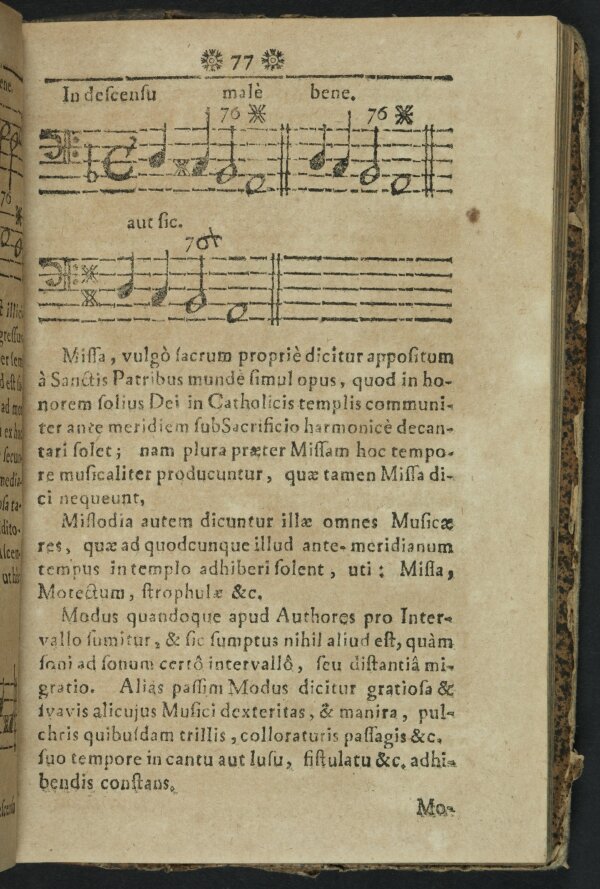 77
In descensu malè bene.
76 76
aut sic.
76
Missa, vulgò sacrum propriè dicitur appositum
à Sanctis Patribus mundè simul opus, quod in ho-
norem solius Dei in Catholicis templis communi-
ter ante meridiem sub Sacrificio harmonicè decan-
tari solet; nam plura præter Missam hoc tempo-
re musicaliter producuntur, quæ tamen Missa di-
ci nequeunt,
Mislodia autem dicuntur illæ omnes Musicæ
res, quæ ad quodcunque illud ante-meridianum
tempus in templo adhiberi solent, uti: Missa,
Motectum, strophulæ &c.
Modus quandoque apud Authores pro Inter-
vallo sumitur, & sic sumptus nihil aliud est, quàm
soni ad sonum certô intervallô, seu distantiâ mi-
gratio. Alias passim Modus dicitur gratiosa &
svavis alicujus Musici dexteritas, & manira, pul-
chris quibusdam trillis, colloraturis passagis &c.
suo tempore in cantu aut lusu, fistulatu &c. adhi-
bendis constans.
Mo-